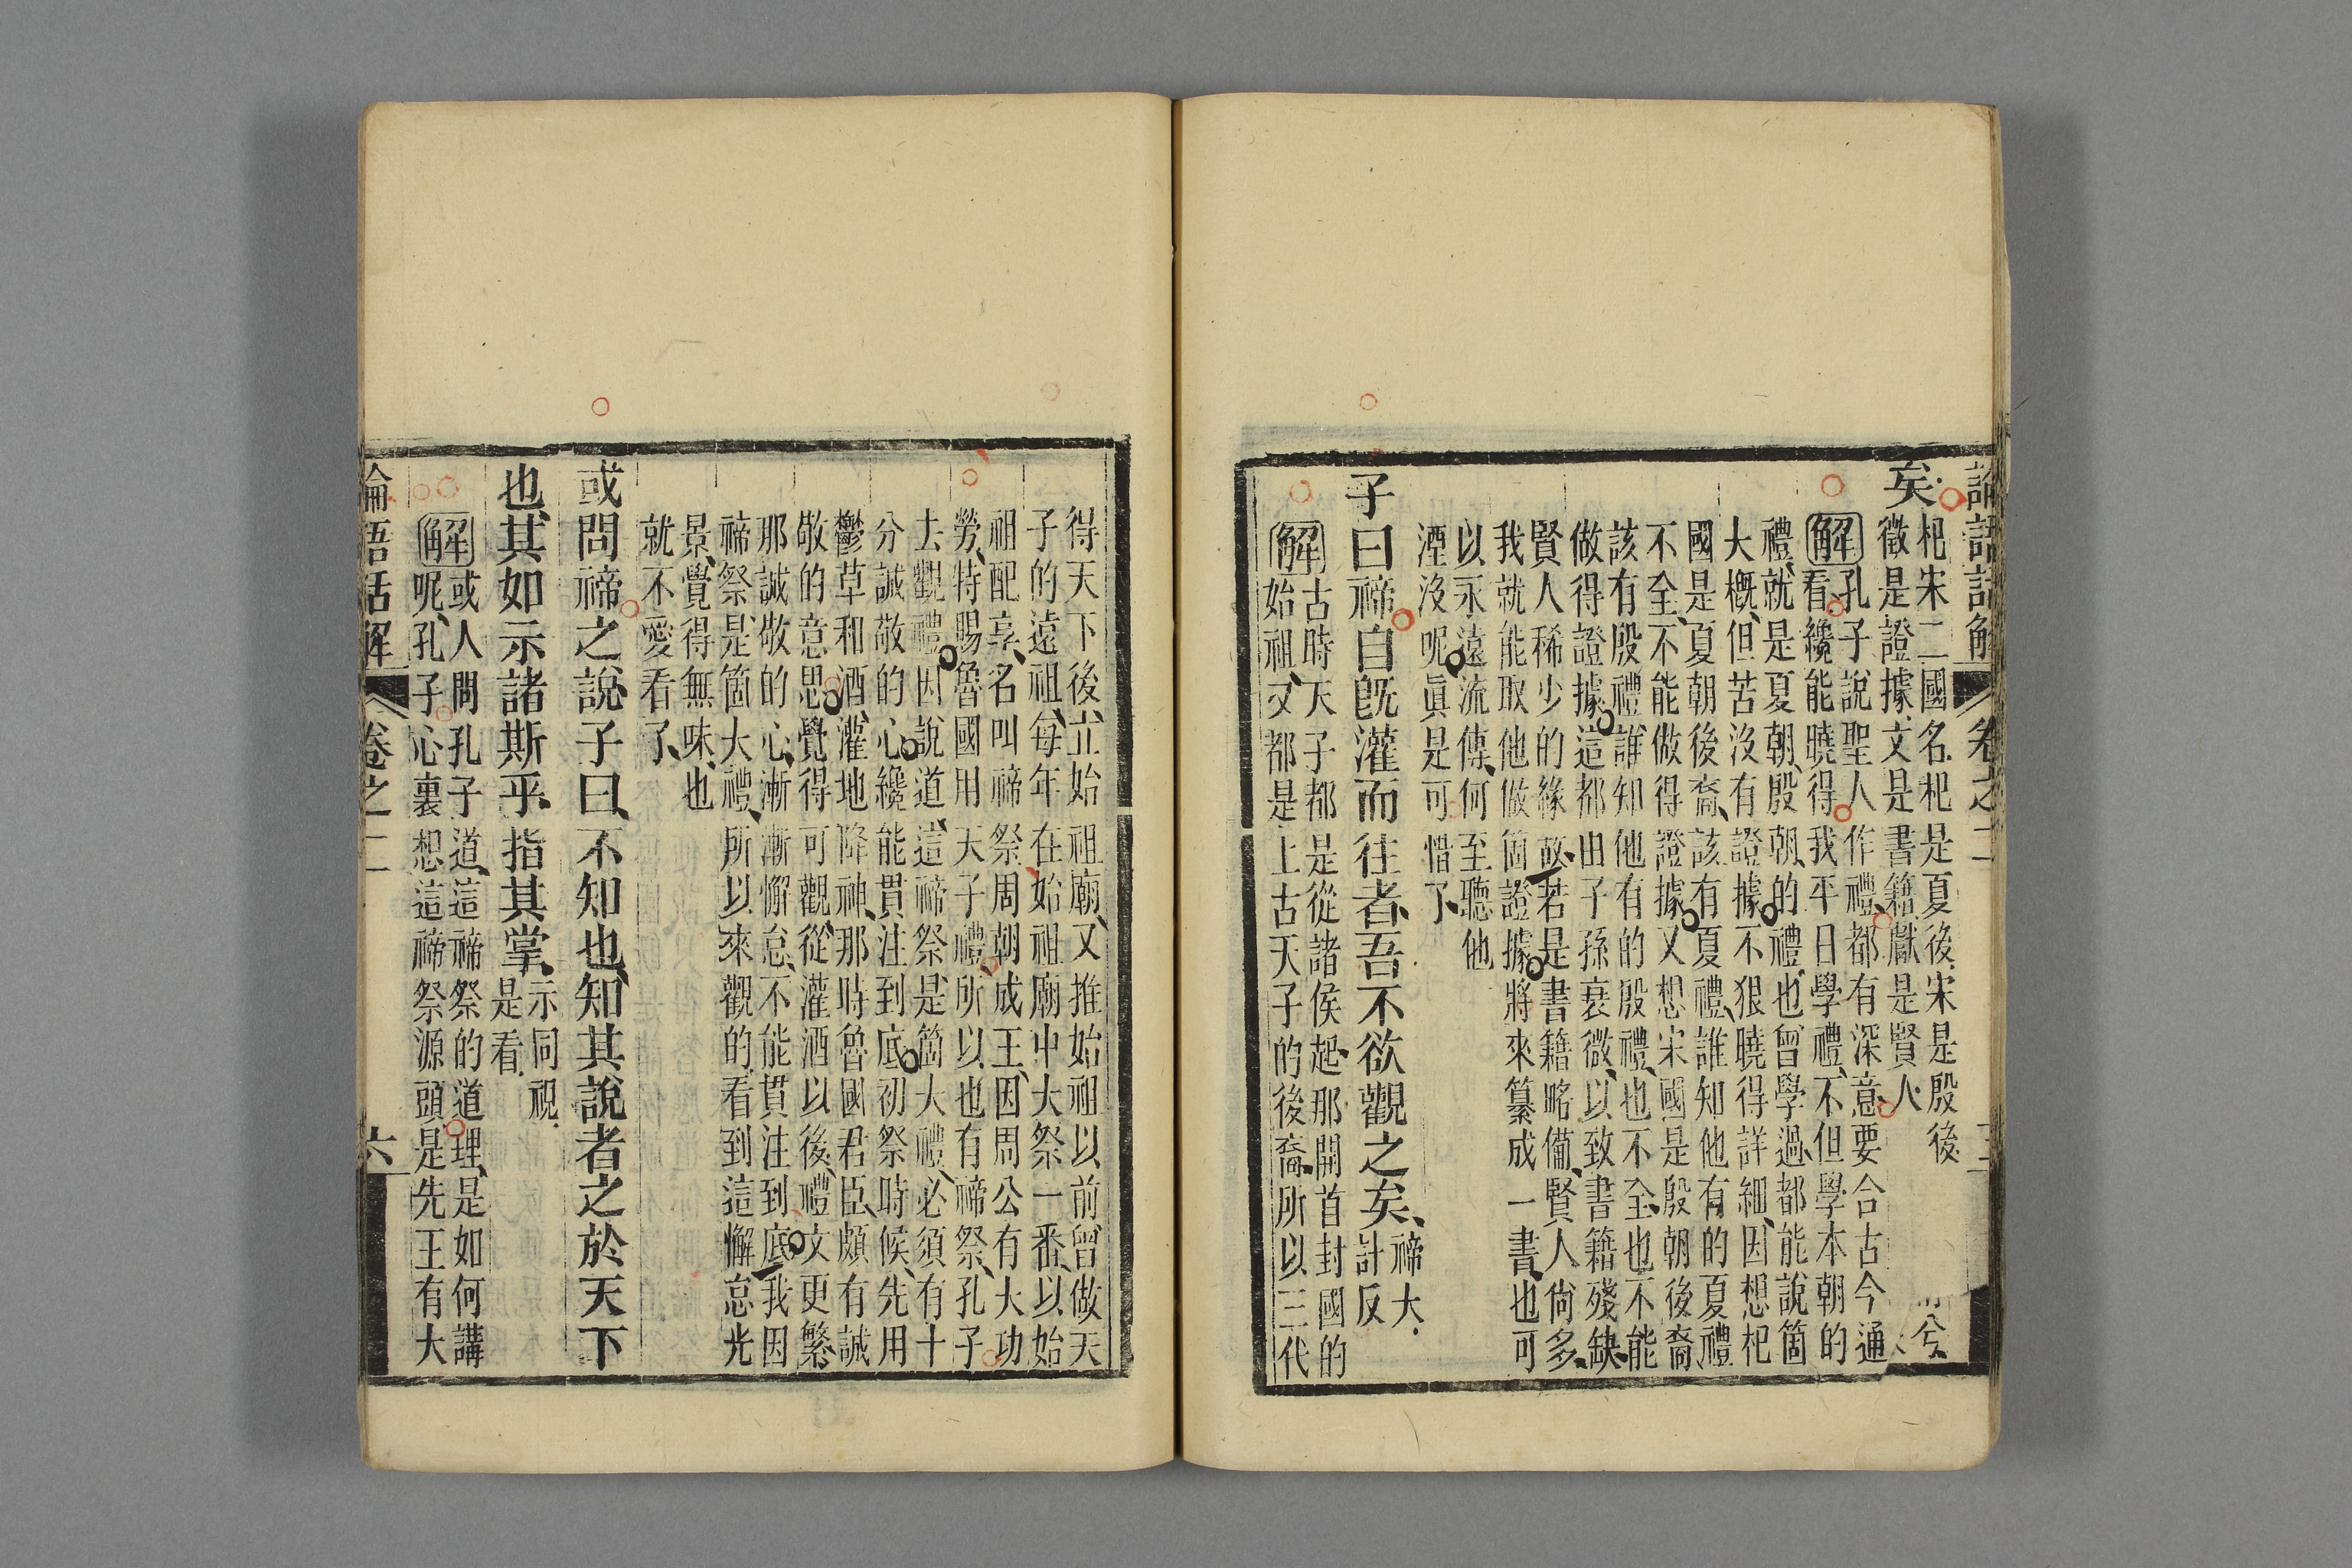 論語話解 卷之二
矣
杞宋二國名、杞是夏後、宋是殷後
徵是證據、文是書籍、獻是賢人、
解孔子說、聖人作禮、都有深意、要合古今通
看、纔能曉得、我平日學禮、不但學本朝的
禮、就是夏朝、殷朝、的禮、也曾學過、都能說箇
大槪、但苦沒有證據、不狠曉得詳細、因想杞
國是夏朝後裔、該有夏禮、誰知他有的夏禮
不全、不能做得證據、又想宋國是殷朝後裔、
該有殷禮、誰知他有的殷禮、也不全、也不能
做得證據、這都由子孫衰微、以致書籍殘缺、
賢人稀少的緣故、若是書籍略備、賢人尙多、
我就能取他做箇證據、將來纂成一書、也可
以永遠流傳、何至聽他
湮沒呢、眞是可惜了、
子曰禘自旣灌而往者、吾不欲觀之矣、
禘大、
計反
解古時天子都是從諸侯起、那開首封國的
始祖、又都是上古天子的後裔、所以三代
得天下後、立始祖廟、又推始祖以前、曾做天
子的遠祖、每年在始祖廟中大祭一番、以始
祖配享、名叫禘祭、周朝成王、因周公有大功
勞、特賜魯國用天子禮、所以也有禘祭、孔子
去觀禮、因說道、這禘祭、是箇大禮、必須有十
分誠敬的心、纔能貫注到底、初祭時候、先用
鬱草和酒、灌地降神、那時魯國君臣、頗有誠
敬的意思、覺得可觀、從灌酒以後、禮文更繁、
那誠敬的心、漸漸懈怠、不能貫注到底、我因
禘祭、是箇大禮、所以來觀的、看到這懈怠光
景、覺得無味、也
就不愛看了、
或問禘之說、子曰、不知也、知其說者之於天下
也、其如示諸斯乎、指其掌、
示同視、
是看、
解或人問孔子道、這禘祭的道理、是如何講
呢、孔子心裏想這禘祭源頭、是先王有大
論語話解 卷之二 六